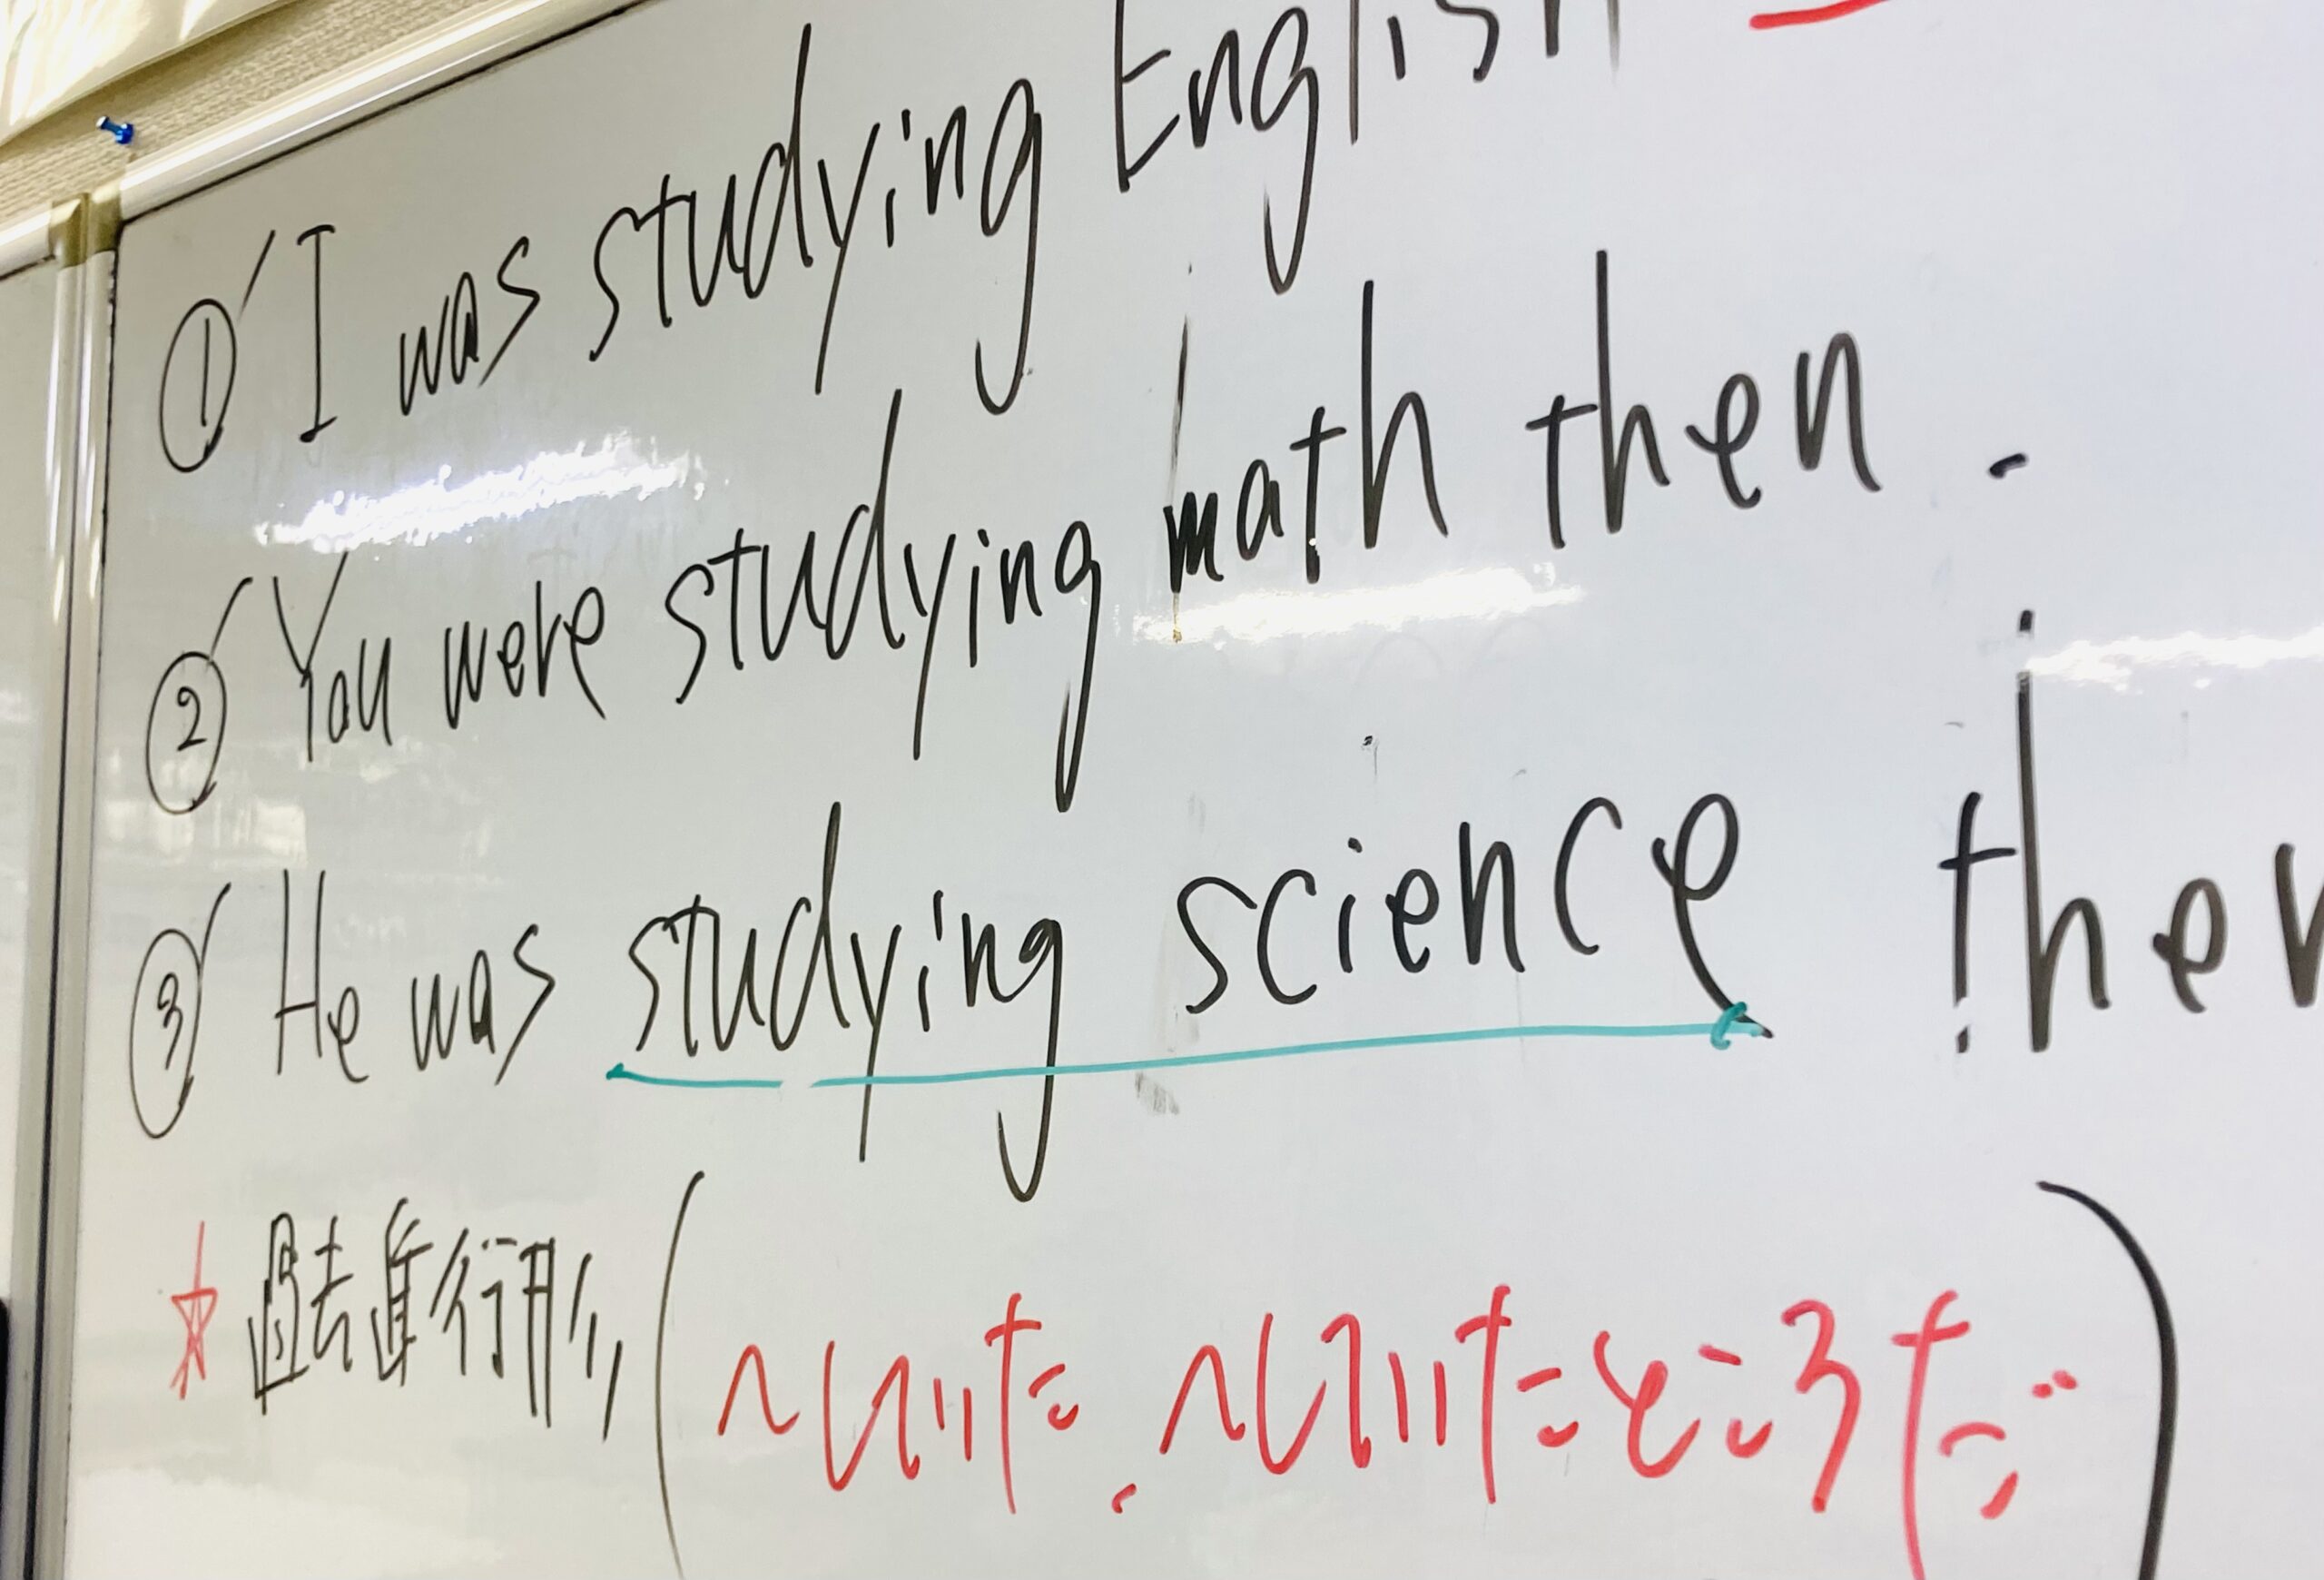 ① I was studying English
② You were studying math then.
③ He was studying science then
★ 過去進行形 (〜していた、〜していたところだ)